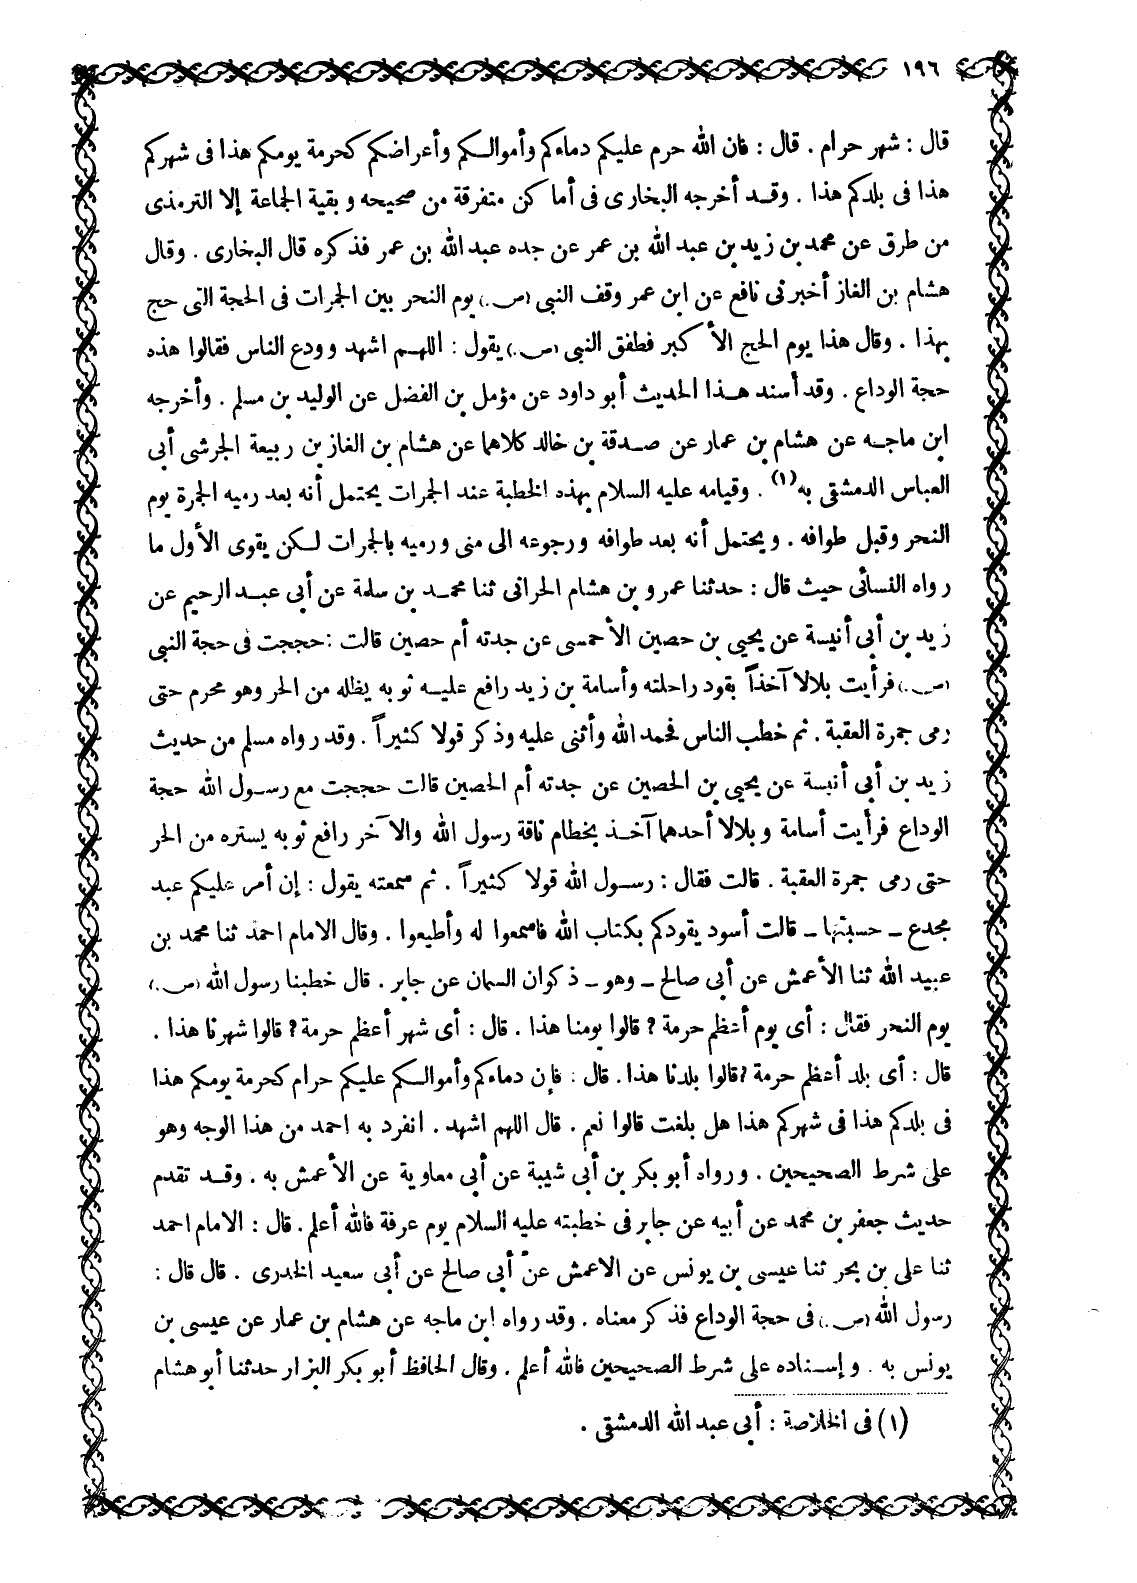 ١٩٦
قال : شهر حرام . قال : فان الله حرم عليكم دماءكم وأموالكم وأعراضكم كحرمة يومكم هذا فى شهركم
هذا فى بلدكم هذا . وقد أخرجه البخارى فى أماكن متفرقة من صحيحه وبقية الجماعة إلا الترمذى
من طرق عن محمد بن زيد بن عبد الله بن عمر عن جده عبد الله بن عمر فذكره قال البخارى . وقال
هشام بن الغاز أخبرنى نافع عن ابن عمر وقف النبى (ص.) يوم النحر بين الجمرات فى الحجة التى حج
بهذا . وقال هذا يوم الحج الأكبر فطفق النبى (ص.) يقول : اللهم اشهد وودع الناس فقالوا هذه
حجة الوداع . وقد أسند هذا الحديث أبو داود عن مؤمل بن الفضل عن الوليد بن مسلم . وأخرجه
ابن ماجه عن هشام بن عمار عن صدقة بن خالد كلاهما عن هشام بن الغاز بن ربيعة الجرشى أبى
العباس الدمشقى به (١) . وقيامه عليه السلام بهذه الخطبة عند الجمرات يحتمل أنه بعد رميه الجمرة يوم
النحر وقبل طوافه . ويحتمل أنه بعد طوافه ورجوعه الى منى ورميه بالجمرات لكن يقوى الأول ما
رواه النسائى حيث قال : حدثنا عمرو بن هشام الحرانى ثنا محمد بن سلمة عن أبى عبد الرحيم عن
زيد بن أبى أنيسة عن يحيى بن حصين الأحمسى عن جدته أم حصين قالت : حججت فى حجة النبى
(ص.) فرأيت بلالا آخذاً بقود راحلته وأسامة بن زيد رافع عليه ثوبه يظله من الحر وهو محرم حتى
رمى جمرة العقبة . ثم خطب الناس فحمد الله وأثنى عليه وذكر قولا كثيراً . وقد رواه مسلم من حديث
زيد بن أبى أنيسة عن يحيى بن الحصين عن جدته أم الحصين قالت حججت مع رسول الله حجة
الوداع فرأيت أسامة وبلالا أحدهما آخذ بخطام ناقة رسول الله والآخر رافع ثوبه يستره من الحر
حتى رمى جمرة العقبة . قالت فقال : رسول الله قولا كثيراً . ثم سمعته يقول : إن أمر عليكم عبد
مجدع ــ حسبتها ــ قالت أسود يقودكم بكتاب الله فاسمعوا له وأطيعوا . وقال الامام احمد ثنا محمد بن
عبيد الله ثنا الأعمش عن أبى صالح ــ وهو ــ ذكوان السمان عن جابر . قال خطبنا رسول الله (ص.)
يوم النحر فقال : أى يوم أعظم حرمة ? قالوا يومنا هذا . قال : أى شهر أعظم حرمة ? قالوا شهرنا هذا .
قال : أى بلد أعظم حرمة ? قالوا بلدنا هذا . قال : فإن دماءكم وأموالكم عليكم حرام كحرمة يومكم هذا
فى بلدكم هذا فى شهركم هذا هل بلغت قالوا نعم . قال اللهم اشهد . انفرد به احمد من هذا الوجه وهو
على شرط الصحيحين . ورواه أبو بكر بن أبى شيبة عن أبى معاوية عن الأعمش به . وقد تقدم
حديث جعفر بن محمد عن أبيه عن جابر فى خطبته عليه السلام يوم عرفة فالله أعلم . قال : الامام احمد
ثنا على بن بحر ثنا عيسى بن يونس عن الاعمش عن أبى صالح عن أبى سعيد الخدرى . قال قال :
رسول الله (ص.) فى حجة الوداع فذكر معناه . وقد رواه ابن ماجه عن هشام بن عمار عن عيسى بن
يونس به . وإسناده على شرط الصحيحين فالله أعلم . وقال الحافظ أبو بكر البزار حدثنا أبو هشام
(١) فى الخلاصة : أبى عبد الله الدمشقى .